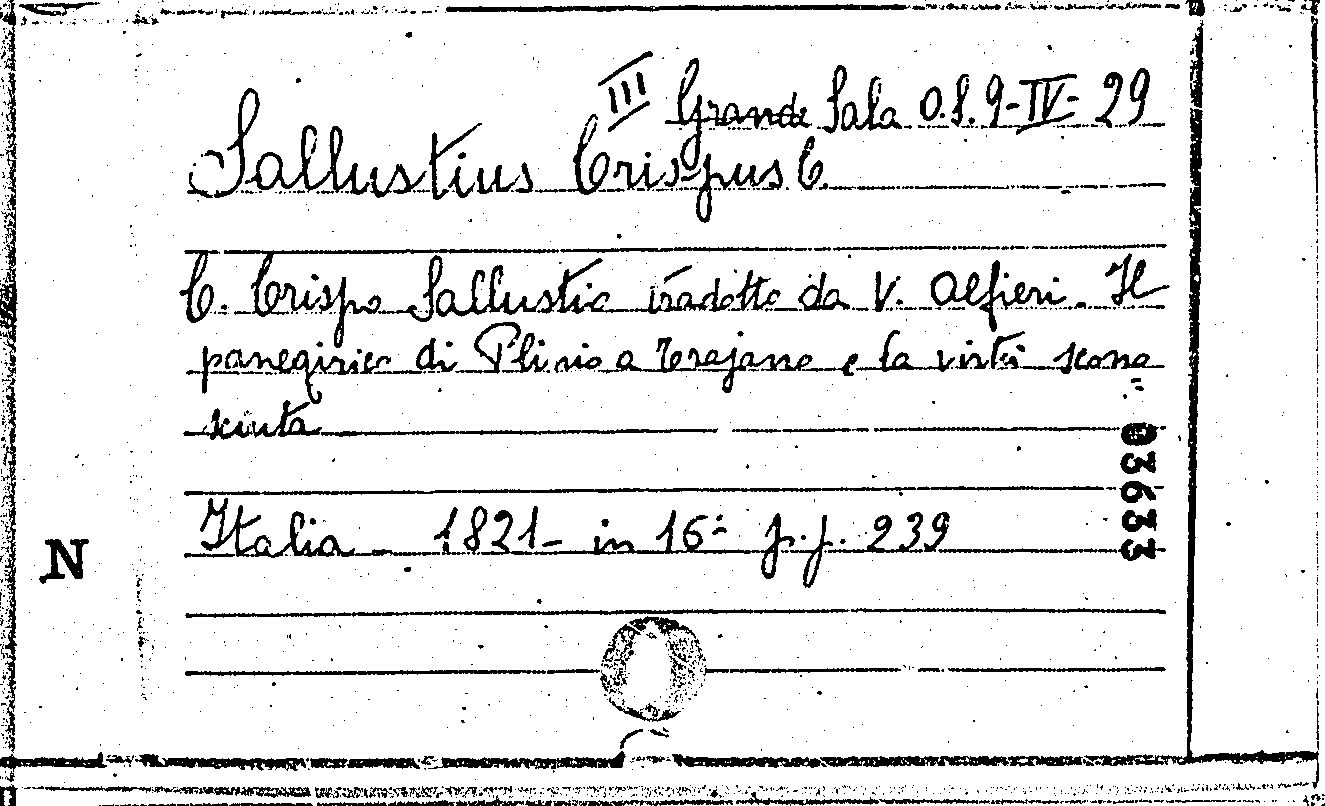 III Grande Sala O.S. 9-IV-29
Sallustius Crispus C.
C. Crispo Sallustio tradotto da V. Alfieri. Il
panegirico di Plinio a Trajano e la virtù scono
sciuta
Italia - 1821 - in 16° p.p. 239
N
03633